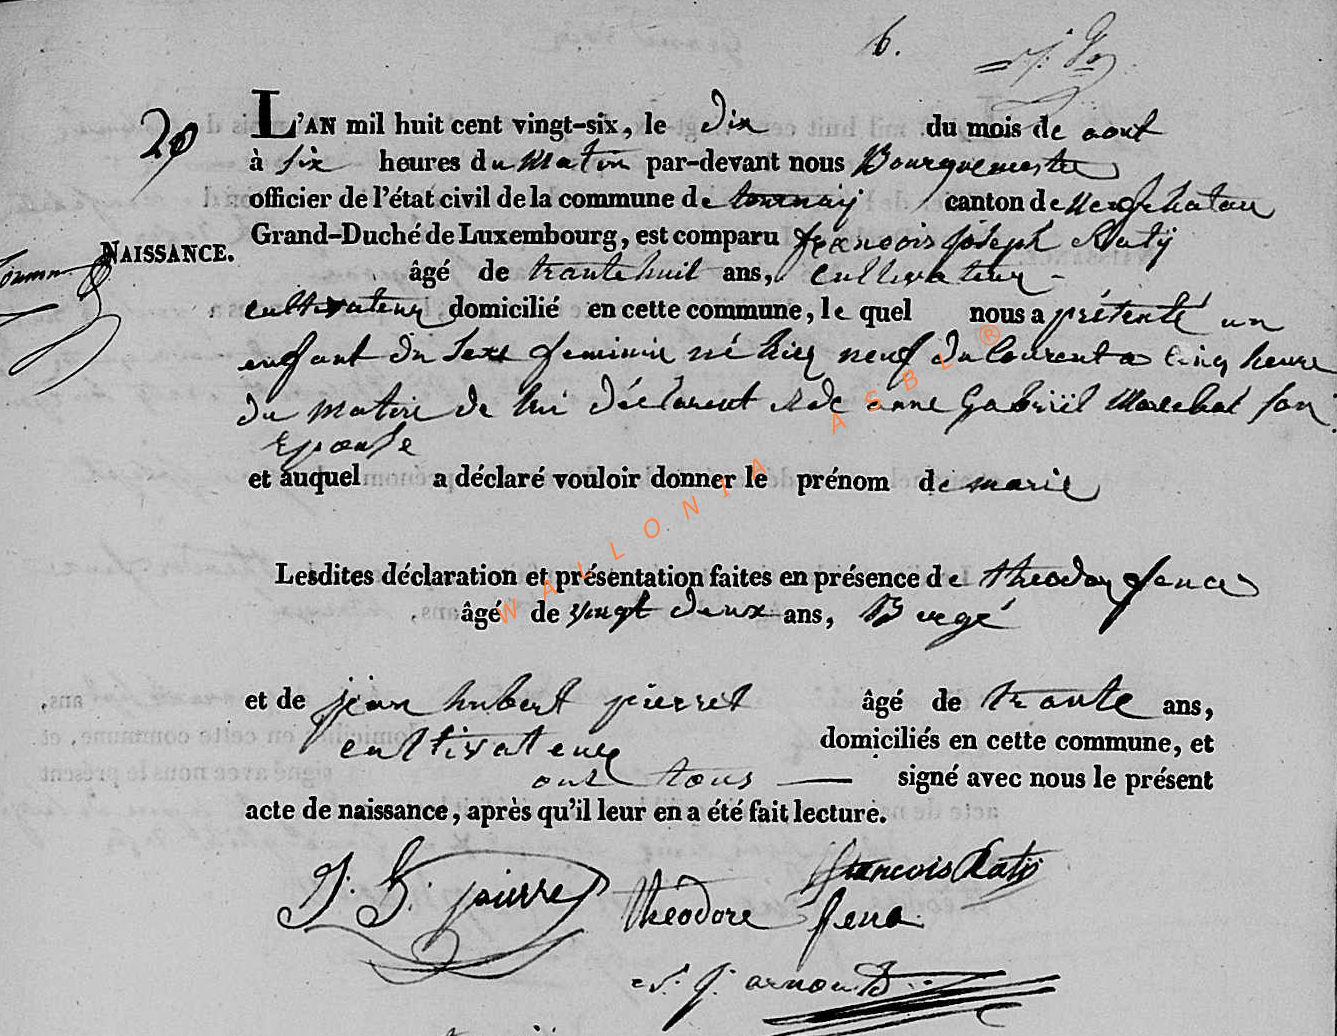 6.
29
L'AN mil huit cent vingt-six, le dix du mois de aout
à six heures du matin par-devant nous Bourquemestre
officier de l'état civil de la commune de tournay canton de neufchatau
NAISSANCE.
Grand-Duché de Luxembourg, est comparu francois joseph Raty
âgé de trante huit ans, cultivateur
cultivateur domicilié en cette commune, le quel nous a présenté un
enfant du sexe feminin né hier neuf du courent a cinq heure
du matin de lui déclarent & de anne Gabriil Marechal son
Epouse
et auquel a déclaré vouloir donner le prénom de marie
Lesdites déclaration et présentation faites en présence de theodor
âgé de vingt deux ans, Bergé
et de jean hubert pierret âgé de trante ans,
cultivateur domiciliés en cette commune, et
ont tous signé avec nous le présent
acte de naissance, après qu'il leur en a été fait lecture.
francois Raty
J. H. pierret théodore
arnould
WALLONIA ASBL ®